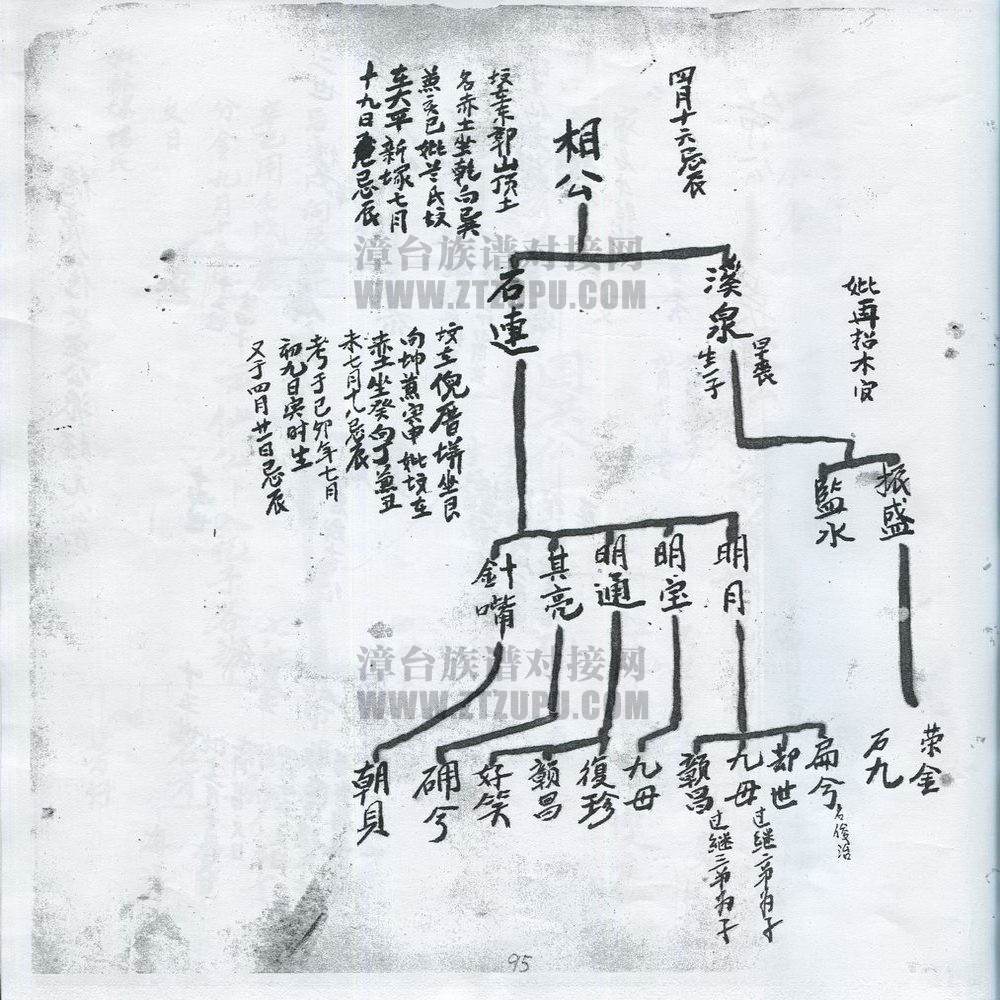 四月十六忌辰
相公
坟在東郭山顶土
名赤土坐乾向巽
兼亥巳妣兰氏坟
在大平新塚七月
十九日忌辰
漳台族谱对接网
WWW.ZTZUPU.COM
妣再招木官
溪泉
早丧
生一子
石連
坟在倪厝垪坐艮
向坤兼寅申妣坟在
赤土坐癸向丁兼丑
未七月十八忌辰
考于己卯年七月
初九日寅时生
又于四月廿一日忌辰
振盛
監水
明月
明宝
明通
其亮
針嘴
漳台族谱对接网
WWW.ZTZUPU.COM
荣金
石九
扁兮
名俊治
却世
九毋
过继二弟为子
贛昌
过継三弟为子
九毋
復珍
贛昌
好笑
硧兮
朝貝
95